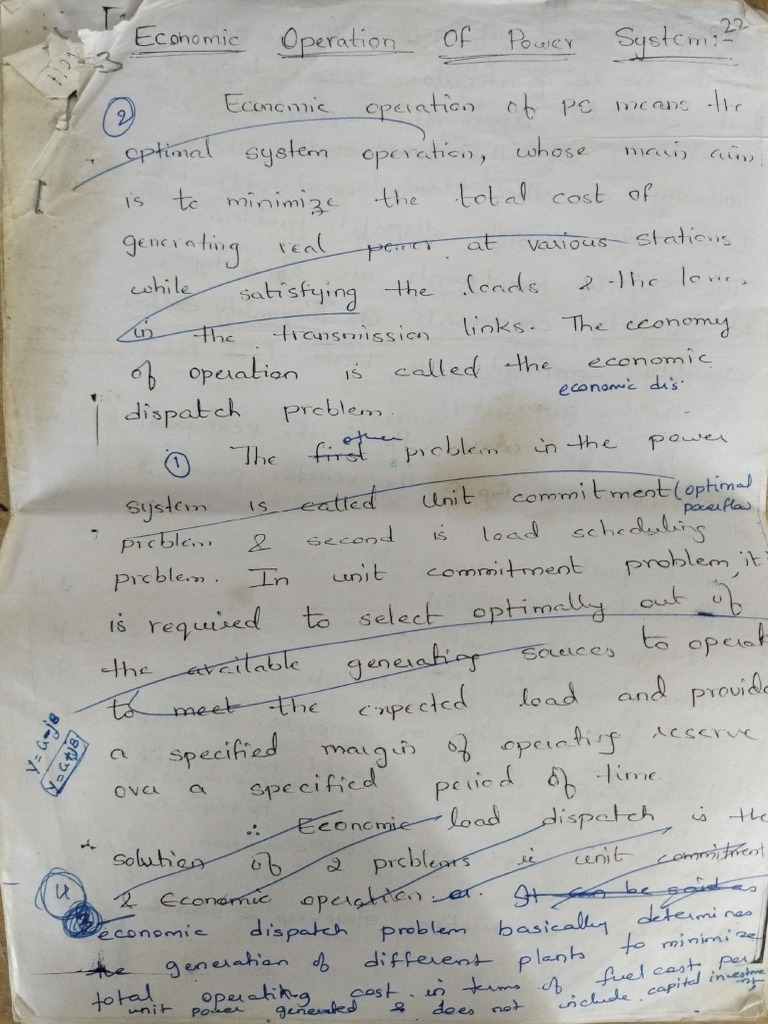 22
Economic Operation Of Power System:-
② Economic operation of PS means the
optimal system operation, whose main aim
is to minimize the total cost of
generating real power at various stations
while satisfying the loads & the
in the transmission links. The economy
of operation is called the economic
economic dis.
dispatch problem.
other
① The first problem in the power
system is called unit commitment (optimal
powerflow
problem & second is load scheduling
problem. In unit commitment problem, it
is required to select optimally out of
the available generating sources to operat
to meet the expected load and provide
a specified margin of operating reserve
over a specified period of time
Y = G-jB
Y = G+jB
∴ Economic load dispatch is the
solution of 2 problems ie unit commitment
& Economic operation or. It can be said as
economic dispatch problem basically determines
the generation of different plants to minimize
total operating cost in terms of fuel cost per
unit power generated & does not include capital investment